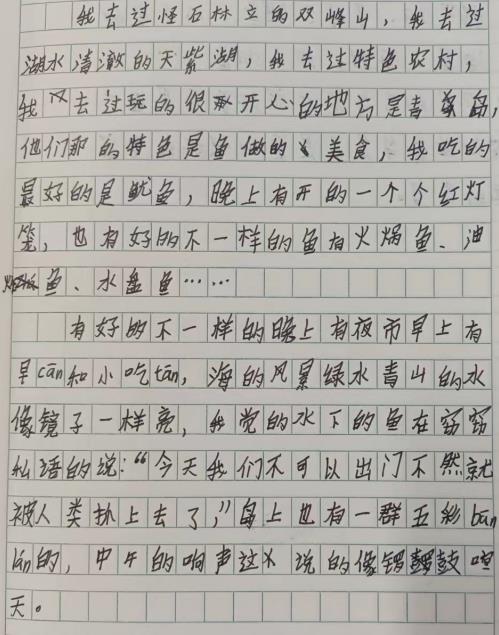 我去过怪石林立的双峰山，我去过
湖水清澈的天紫湖，我去过特色农村，
我去过玩的很开心的地方是青岛，
他们那的特色是鱼做的美食，我吃的
最好的是鱿鱼，晚上有开的一个个红灯
笼，也有好的不一样的鱼有火焗鱼、油
鱼、水盘鱼……
有好的不一样的晚上有夜市早上有
早cān和小吃tān，海的风景绿水青山的水
像镜子一样亮，我觉的水下的鱼在窃窃
私语的说：“今天我们不可以出门不然就
被人类扑上去了，”岛上也有一群五彩bān
lán的，中午的响声过说的像锣鼓喧
天。